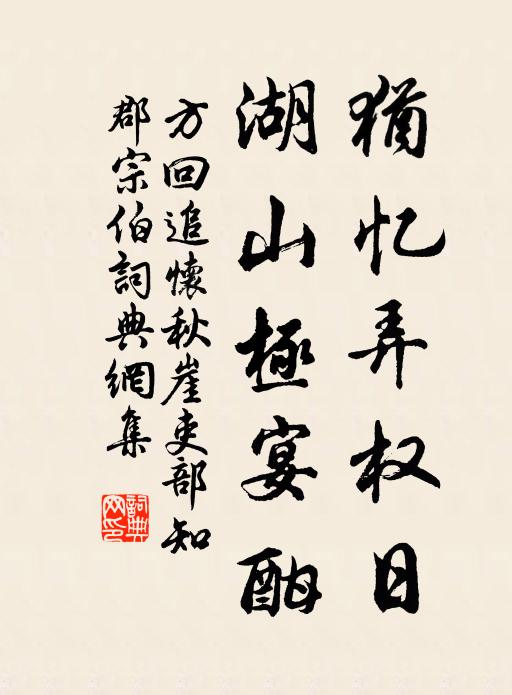 猶忆弄权日
湖山極宴酣
方回追懷秋崖吏部知
郡宗伯詞典網集
詞典
网印